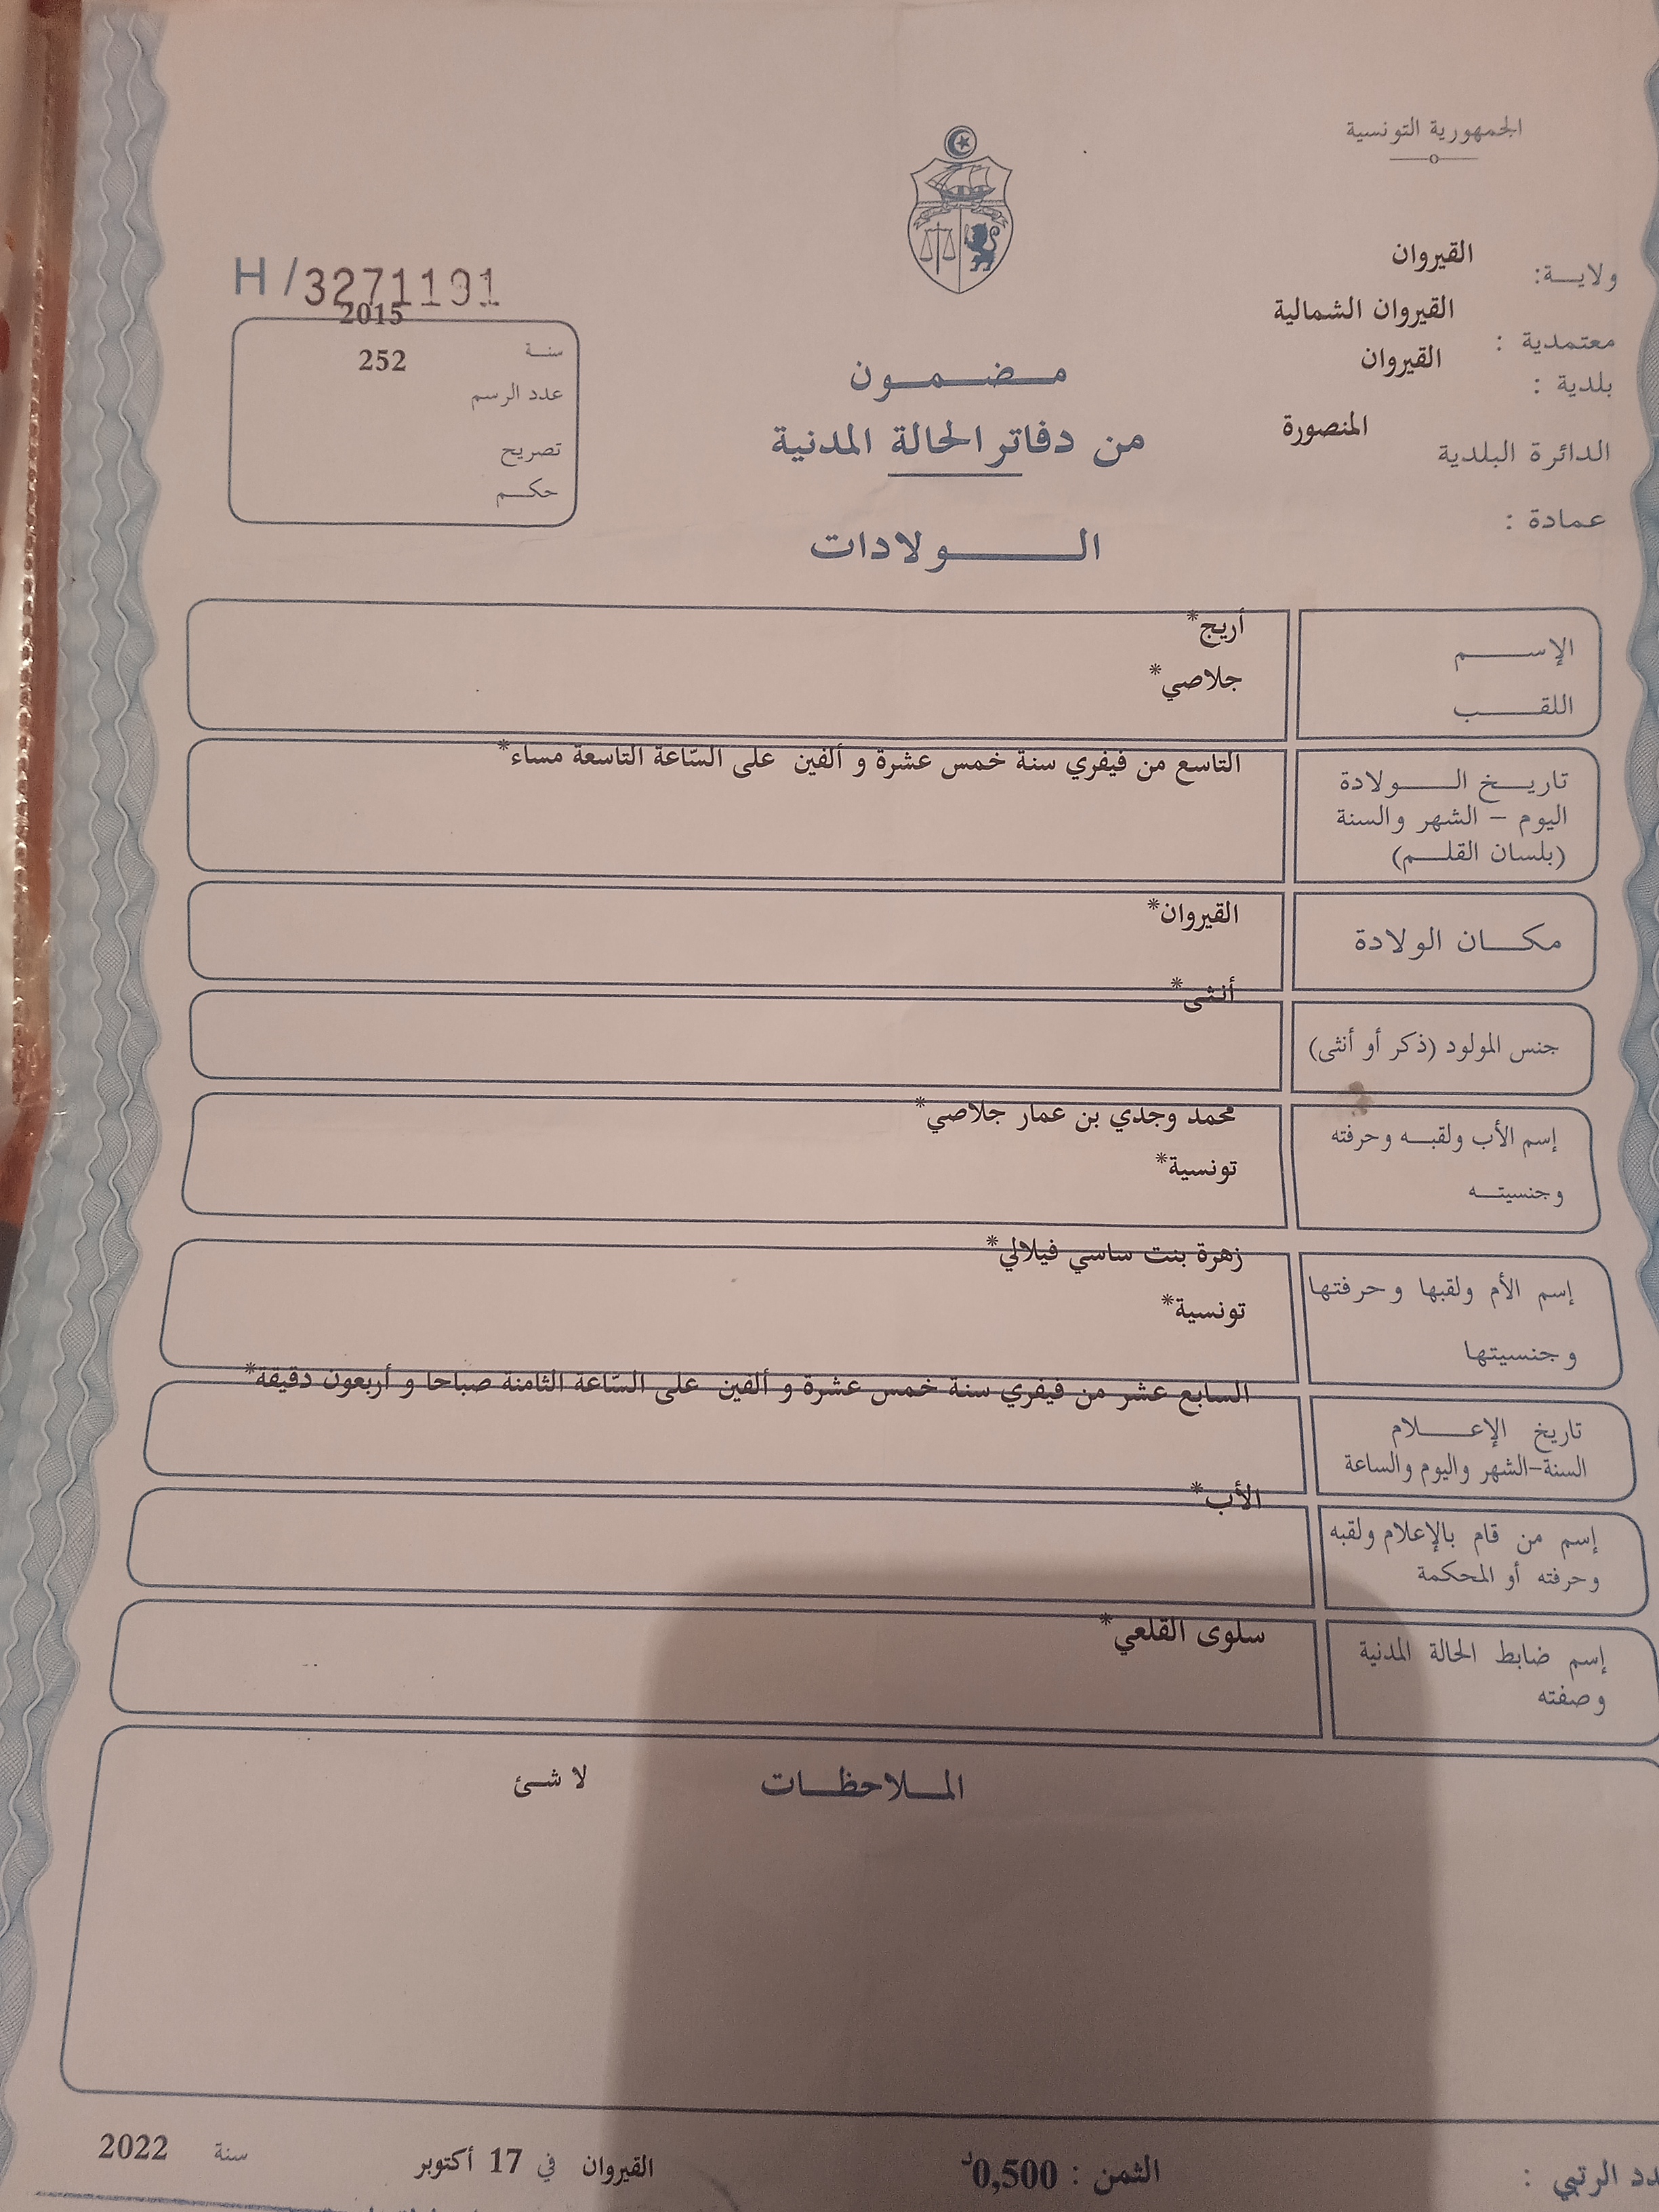 الجمهورية التونسية
ولايـــة: القيروان
معتمدية : القيروان الشمالية
بلدية : القيروان
الدائرة البلدية المنصورة
عمادة :
H/3271191
سنـة 2015
عدد الرسم 252
تصريح
حكـــم
مـــضـــمـــون
من دفاتر الحالة المدنية
الـــــولادات
الإســـــم أريج*
اللقـــــب جلاصي*
تاريـــخ الـــــولادة
اليوم – الشهر والسنة
(بلسان القلـــم)
التاسع من فيفري سنة خمس عشرة و ألفين على السّاعة التاسعة مساء*
مكـــان الولادة القيروان*
جنس المولود (ذكر أو أنثى) أنثى*
إسم الأب ولقبـــه وحرفته محمد وجدي بن عمار جلاصي*
وجنسيتـــه تونسية*
إسم الأم ولقبها وحرفتها زهرة بنت ساسي فيلالي*
وجنسيتها تونسية*
تاريخ الإعـــــلام
السنة-الشهر واليوم والساعة
السابع عشر من فيفري سنة خمس عشرة و ألفين على السّاعة الثامنة صباحا و أربعون دقيقة*
إسم من قام بالإعلام ولقبه
وحرفته أو المحكمة
الأب*
إسم ضابط الحالة المدنية
وصفته
سلوى القلعي*
المـــلاحظـــات لا شئ
الرتبي :
الثمن : 0,500د
القيروان في 17 أكتوبر سنة 2022